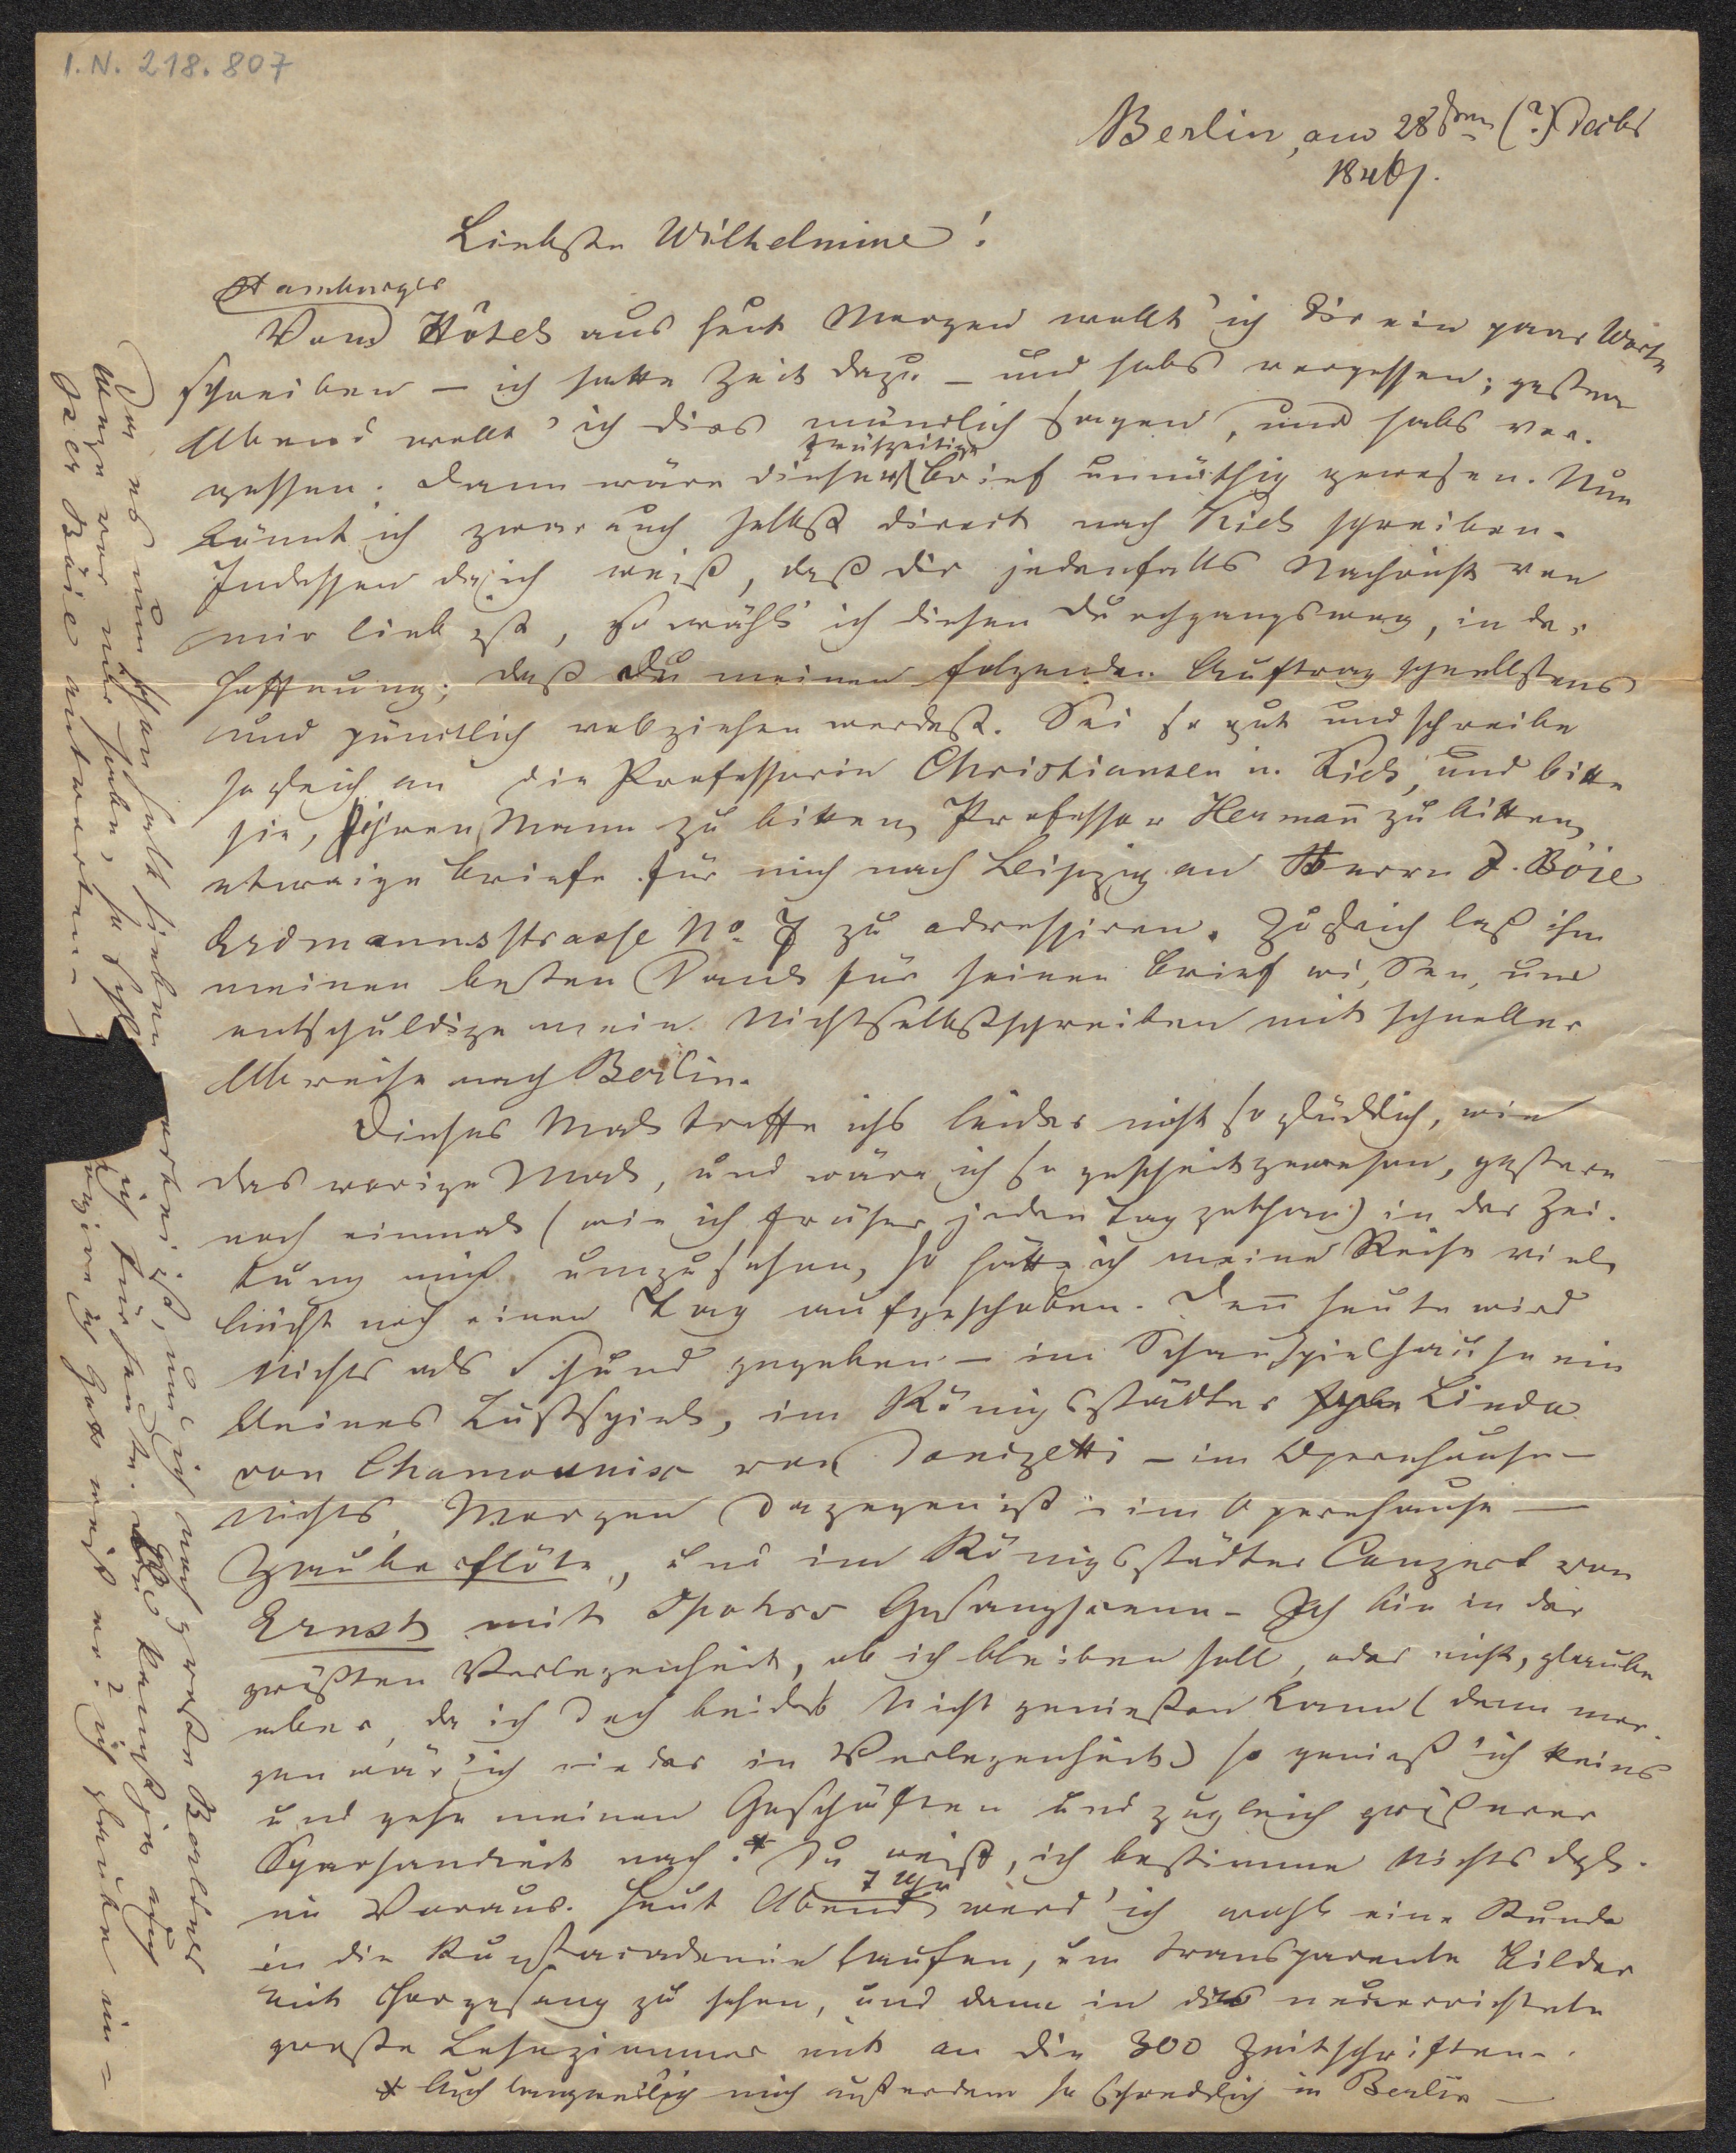 I.N. 218.807
Berlin, am 28sten (?) Decbr
1846.
Liebste Wilhelmine!
Hamburger
Vom Hôtel aus heut Morgen wollt' ich Dir ein paar Worte
schreiben – ich hatte Zeit dazu – und habs vergessen; gestern
Abend wollt' ich dies mündlich sagen, und habs ver-
gessen; dann wäre dieser Brief unnöthig gewesen. Nun
könnt ich zwar auch selbst direct nach Kiel schreiben.
Indessen da ich weiß, daß dir jedenfalls Nachricht von
mir lieb ist, so wähl' ich diesen Durchgangsweg, in der
Hoffnung, daß Du meinen folgenden Auftrag schnellstens
und pünctlich vollziehen werdest. Sei so gut und schreibe
sogleich an die Professorin Christiansen in Kiel, und bitte
sie, ihren Mann zu bitten, Professor Hermann zu bitten,
etwaige Briefe für mich nach Leipzig an Herrn J. Böie
Erdmannsstrasse No. 7 zu adressiren. Zugleich laß ihm
meinen besten Dank für seinen Brief wissen, und
entschuldige mein Nichtselbstschreiben mit schneller
Abreise nach Berlin.
Dieses Mal treffe ichs leider nicht so glücklich, wie
das vorige Mal, und wäre ich so gescheit gewesen, gestern
noch einmal (wie ich früher jeden Tag gethan) in der Zei-
tung mich umzusehen, so hätte ich meine Reise viel-
leicht noch einen Tag aufgeschoben. Denn heute wird
nichts als Schund gegeben – im Schauspielhause ein
kleines Lustspiel, im Königsstädter Linda
von Chamounix von Donizetti – im Opernhause –
nichts, Morgen dagegen ist im Opernhause –
Zauberflöte, und im Königsstädter Conzert von
Ernst mit Spohrs Gesangscene – Ich bin in der
größten Verlegenheit, ob ich bleiben soll, oder nicht, glaube
aber, da ich doch beides nicht genießen kann (denn mor-
gen wär' ich wieder in Verlegenheit) so genieß' ich keins
und gehe meinen Geschäften und zugleich größerer
Sparsamkeit nach.* Du weißt, ich bestimme nichts dgl.
im Voraus. Heut Abend 7 Uhr werd' ich wohl eine Stunde
in die Kunstacademie laufen, um transparente Bilder
mit Chorgesang zu sehen, und dann in das neuerrichtete
große Lesezimmer mit an die 300 Zeitschriften.
* Auch langweilig mich außerdem so schrecklich in Berlin –
Da es nun schon halb sieben vorbei ist, und ich noch große
Wege vor mir habe, so
Herr Böie antworten –